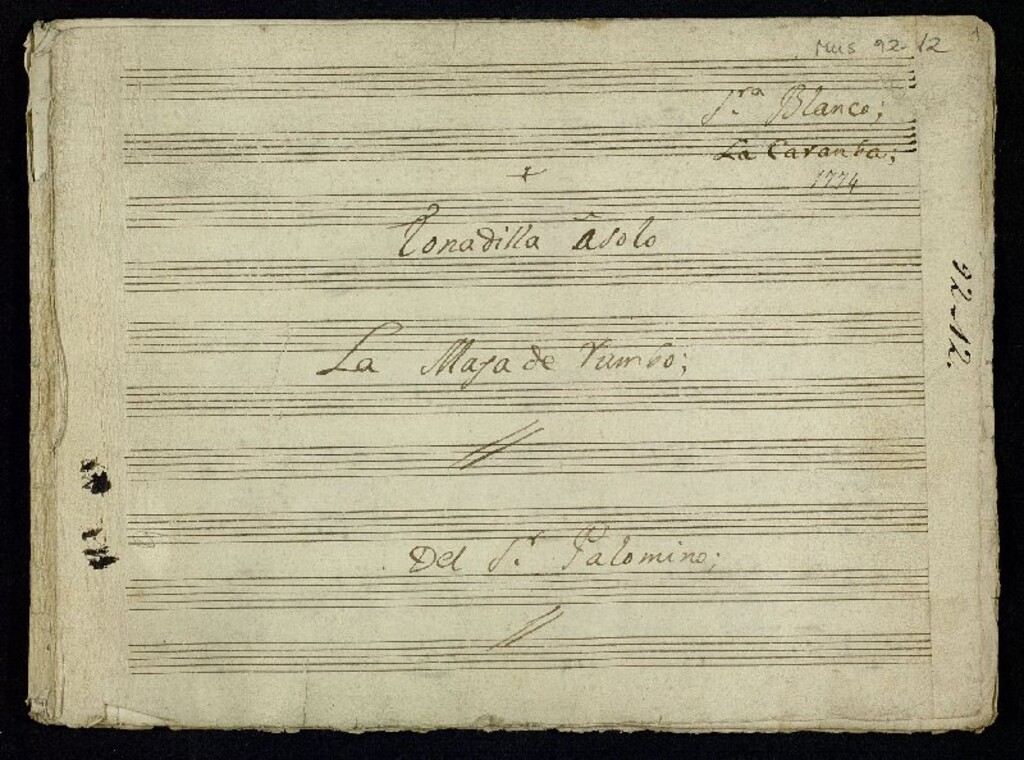 Mus 92-12
1
S.ra Blanco;
La Caramba;
1774
Tonadilla âsolo
La Maja de rumbo;
Del S.r Palomino;
92-12.